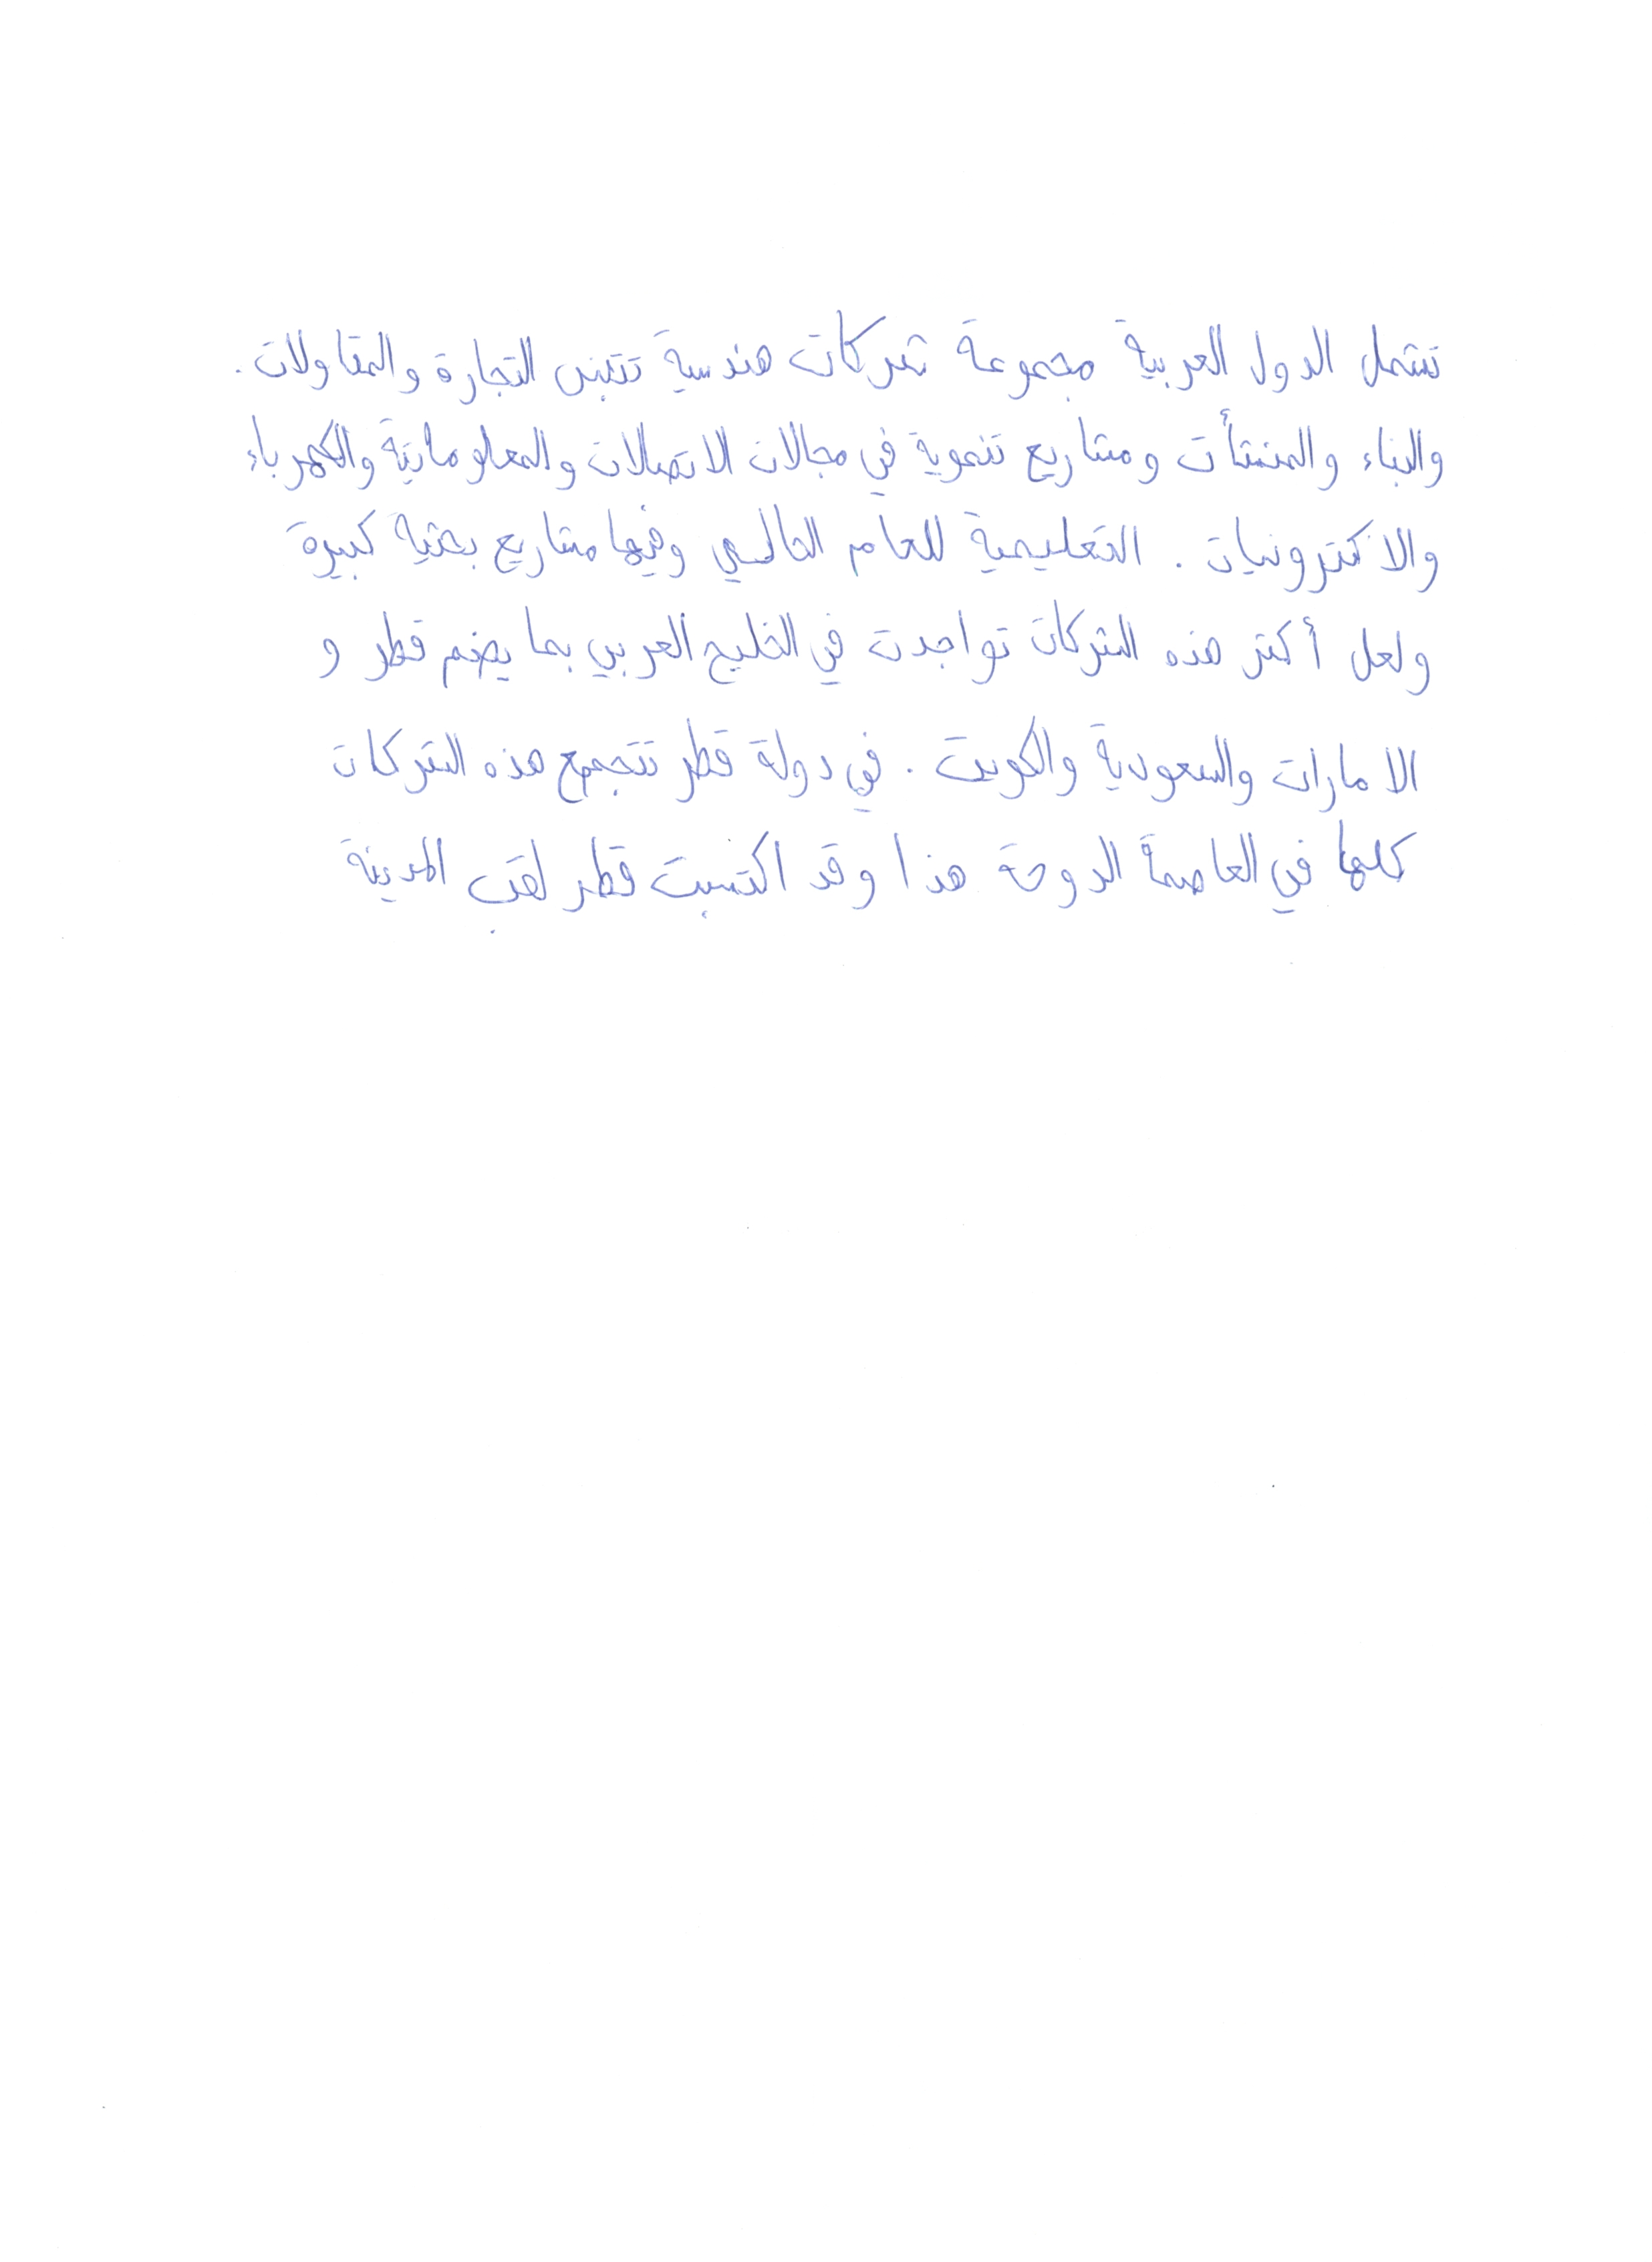 تشمل الدول العربية مجموعة شركات هندسية تتبنى التجارة والمقاولات .
والبناء والمنشأت ومشاريع تنموية في مجالات الاتصالات والمعلوماتية والكهرباء
والاكترونيات . التعليمية للعام الحالي وفيها مشاريع بحثية كبيرة
ولعل أكثر هذه الشركات تواجدت في الخليج العربي بما يضم قطر و
الامارات والسعودية والكويت . في دولة قطر تتجمع هذه الشركات
كلها في العاصمة الدوحة هذا وقد اكتسبت قطر لقب المدينة